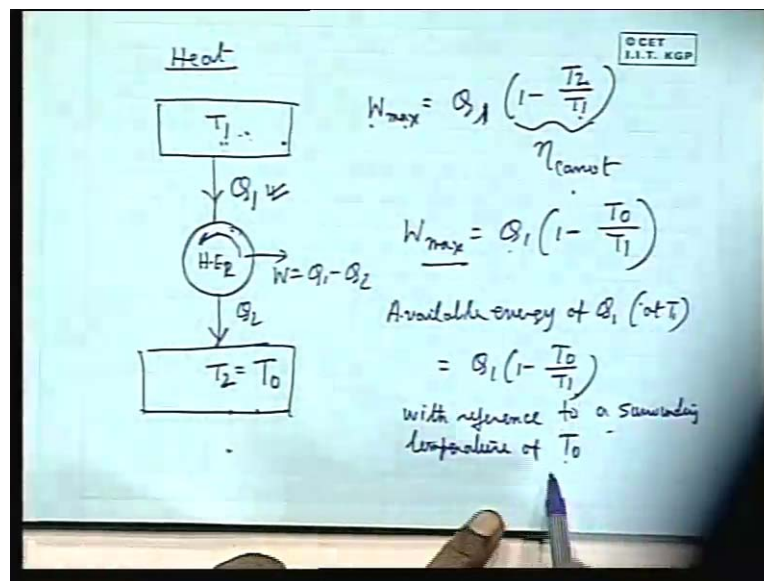 Heat
© CET
I.I.T. KGP
T1
Q1
H.E R
W = Q1 - Q2
Q2
T2 = T0
Wmax = Q1 (1 - T2/T1)
ηcarnot
Wmax = Q1 (1 - T0/T1)
Available energy of Q1 (at T1)
= Q1 (1 - T0/T1)
with reference to a surrounding
temperature of T0